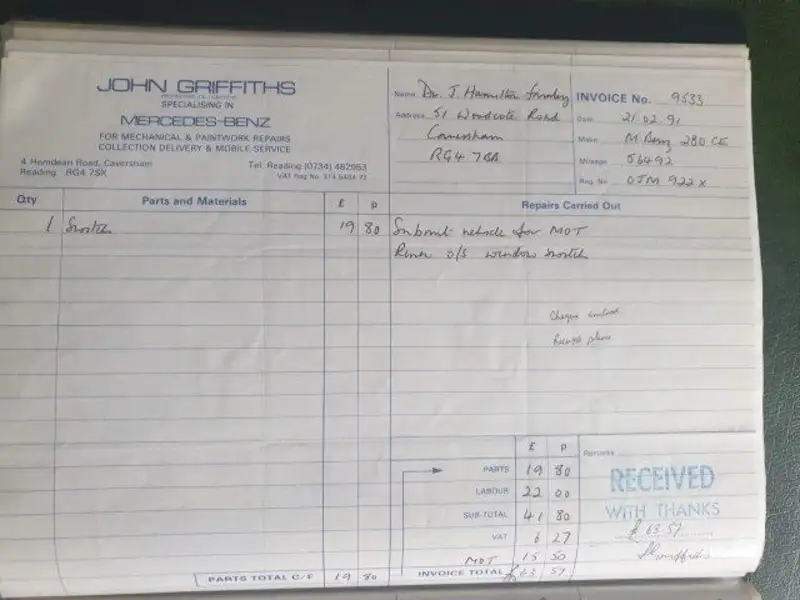 JOHN GRIFFITHS
SPECIALISING IN
MERCEDES-BENZ
FOR MECHANICAL & PAINTWORK REPAIRS
COLLECTION DELIVERY & MOBILE SERVICE
4 Hemdean Road, Caversham
Reading RG4 7SX
Tel. Reading (0734) 482953
VAT Reg No. 314 5484 73
Name Dr. J. Hamilton
Address 51 Woodcote Road
Caversham
RG4 7BA
INVOICE No. 9533
Date 21 02 91
Make M. Benz 280 CE
Mileage 56492
Reg. No OJM 922 X
Qty Parts and Materials £ p Repairs Carried Out
1 Switch 19 80 Submit vehicle for MOT
Renew o/s window switch
Cheque enclosed
Receipt please
£ p
PARTS 19 80
LABOUR 22 00
SUB-TOTAL 41 80
VAT 6 27
MOT 15 50
INVOICE TOTAL £63 57
Remarks
RECEIVED
WITH THANKS
£ 63.57
PARTS TOTAL C/F 19 80